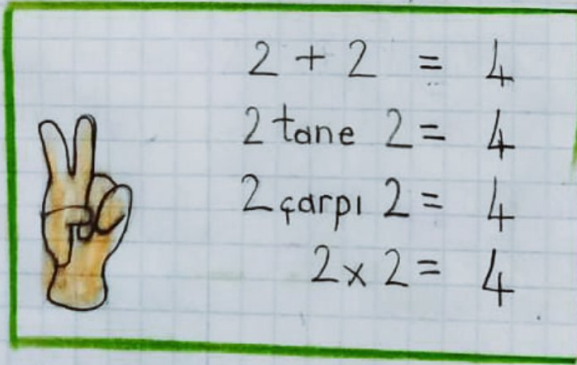 2 + 2 = 4
2 tane 2 = 4
2 çarpı 2 = 4
2 x 2 = 4